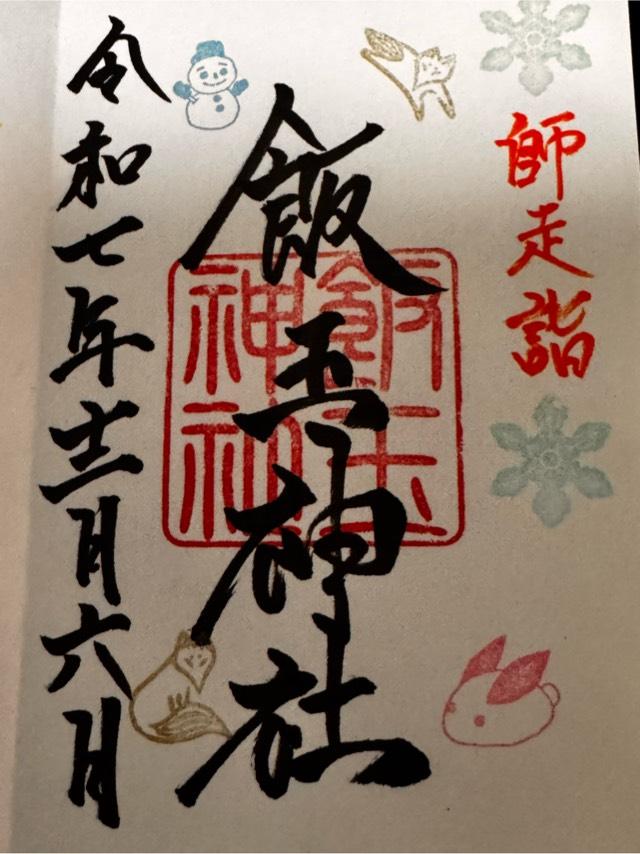 師走詣
飯玉神社
飯玉
神社
令和七年十二月六日